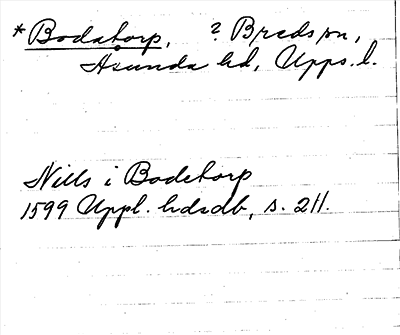 *Bodatorp, ? Breds sn,
Åsunda hd, Upps. l.
Nills i Bodetorp
1599 Uppl. hdrdb, s. 211.